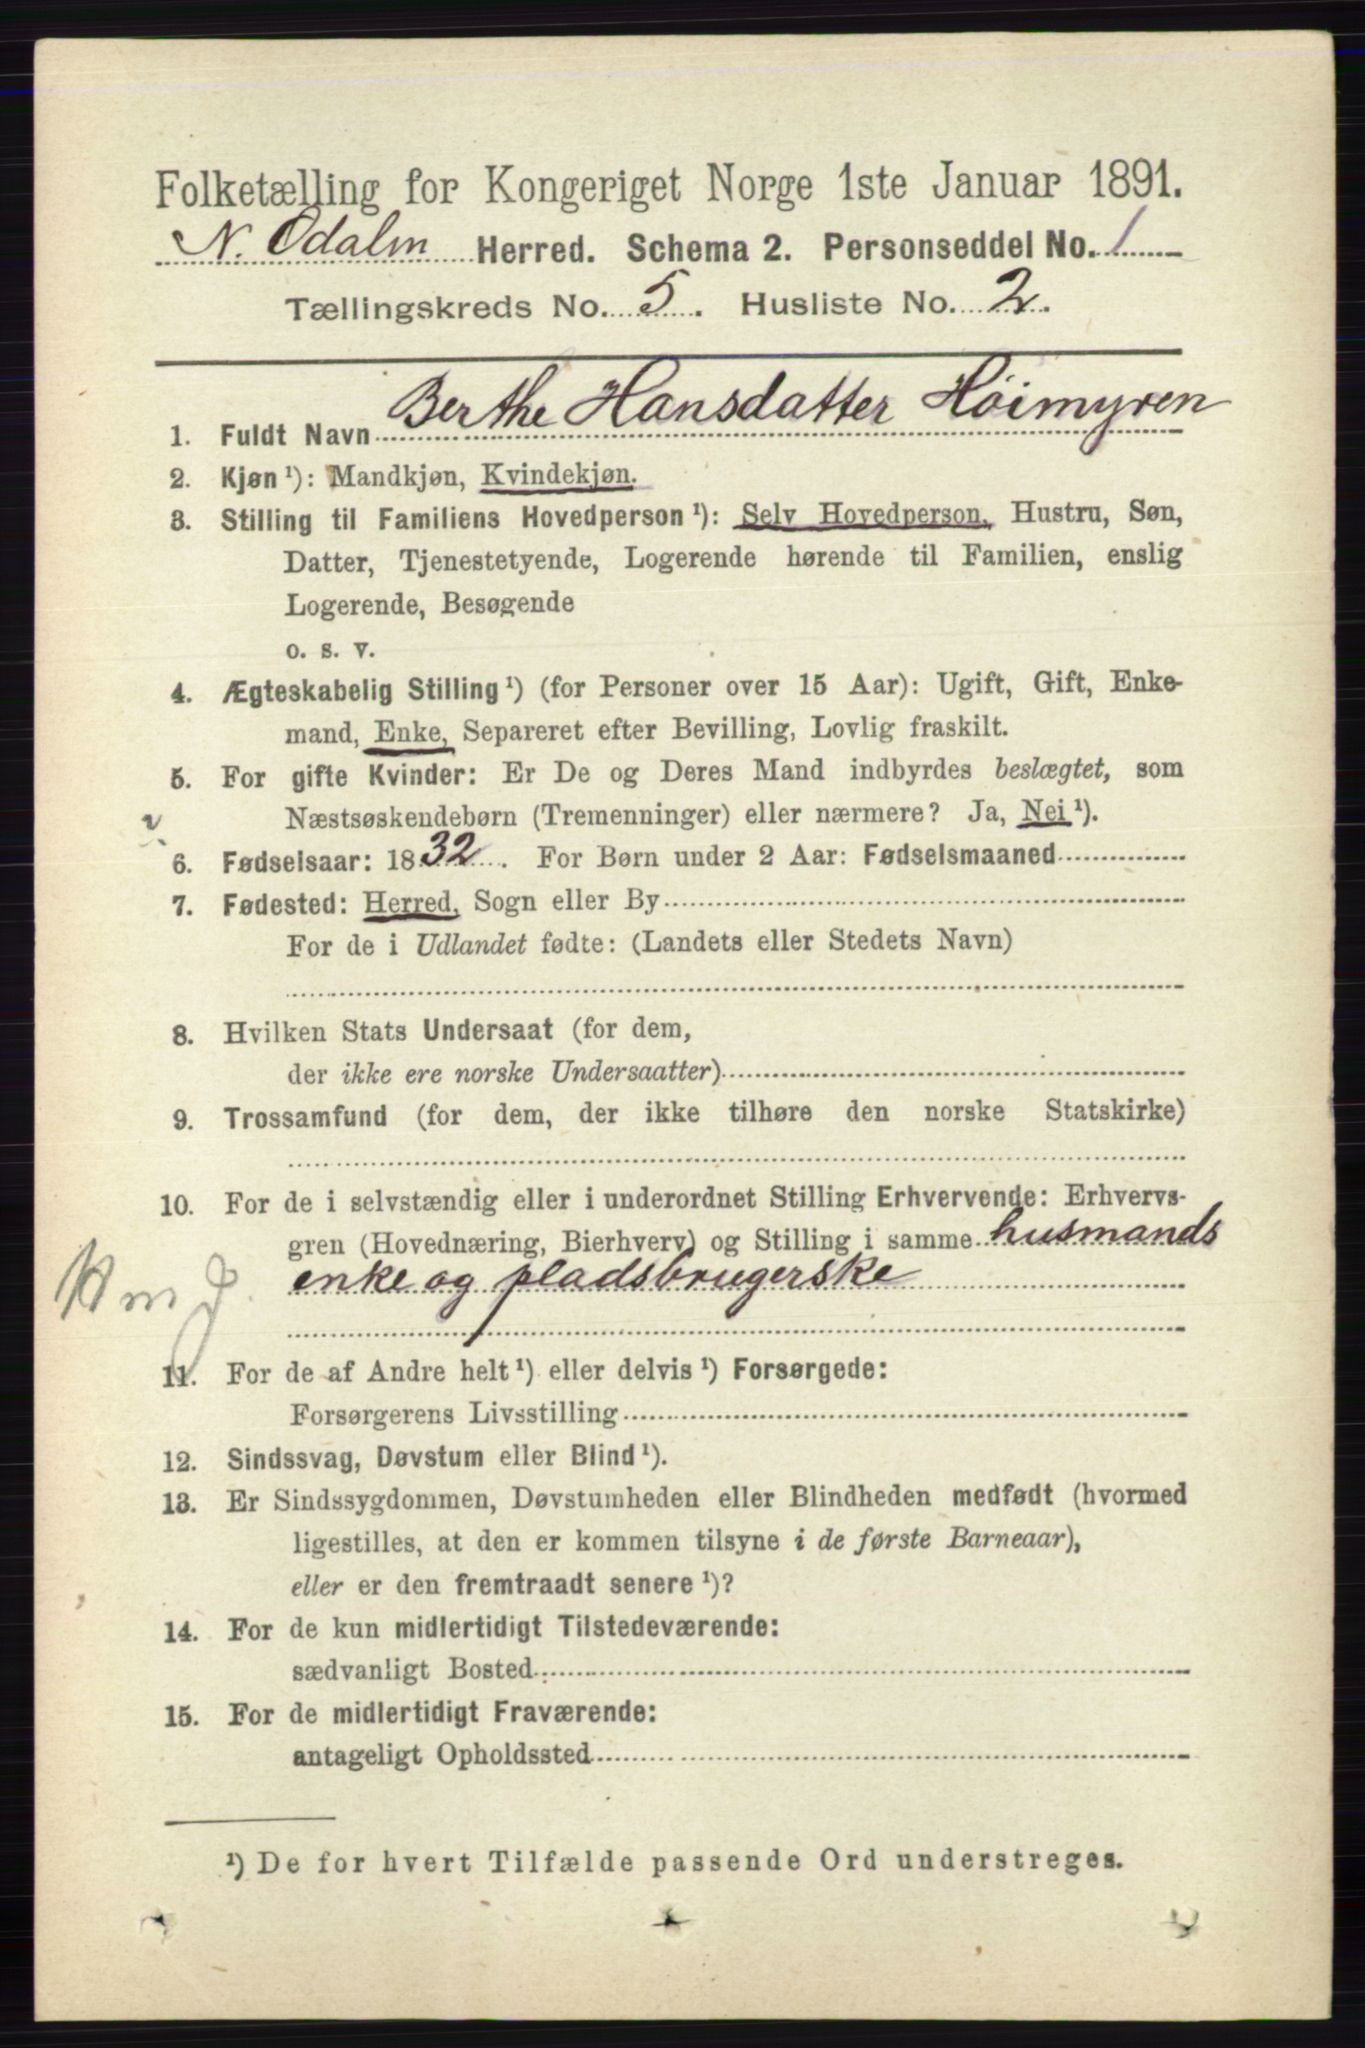 Folketælling for Kongeriget Norge 1ste Januar 1891.
N. Odalen Herred. Schema 2. Personseddel No. 1
Tællingskreds No. 5. Husliste No. 2.
1. Fuldt Navn Berthe Hansdatter Høimyren
2. Kjøn ¹): Mandkjøn, Kvindekjøn.
3. Stilling til Familiens Hovedperson ¹): Selv Hovedperson, Hustru, Søn,
Datter, Tjenestetyende, Logerende hørende til Familien, enslig
Logerende, Besøgende
o. s. v.
4. Ægteskabelig Stilling ¹) (for Personer over 15 Aar): Ugift, Gift, Enke-
mand, Enke, Separeret efter Bevilling, Lovlig fraskilt.
5. For gifte Kvinder: Er De og Deres Mand indbyrdes beslægtet, som
Næstsøskendebørn (Tremenninger) eller nærmere? Ja, Nei ¹).
6. Fødselsaar: 1832. For Børn under 2 Aar: Fødselsmaaned
7. Fødested: Herred, Sogn eller By
For de i Udlandet fødte: (Landets eller Stedets Navn)
8. Hvilken Stats Undersaat (for dem,
der ikke ere norske Undersaatter)
9. Trossamfund (for dem, der ikke tilhøre den norske Statskirke)
10. For de i selvstændig eller i underordnet Stilling Erhvervende: Erhvervs-
gren (Hovednæring, Bierhverv) og Stilling i samme husmands
enke og pladsbrugerske
11. For de af Andre helt ¹) eller delvis ¹) Forsørgede:
Forsørgerens Livsstilling
12. Sindssvag, Døvstum eller Blind ¹).
13. Er Sindssygdommen, Døvstumheden eller Blindheden medfødt (hvormed
ligestilles, at den er kommen tilsyne i de første Barneaar),
eller er den fremtraadt senere ¹)?
14. For de kun midlertidigt Tilstedeværende:
sædvanligt Bosted
15. For de midlertidigt Fraværende:
antageligt Opholdssted
¹) De for hvert Tilfælde passende Ord understreges.